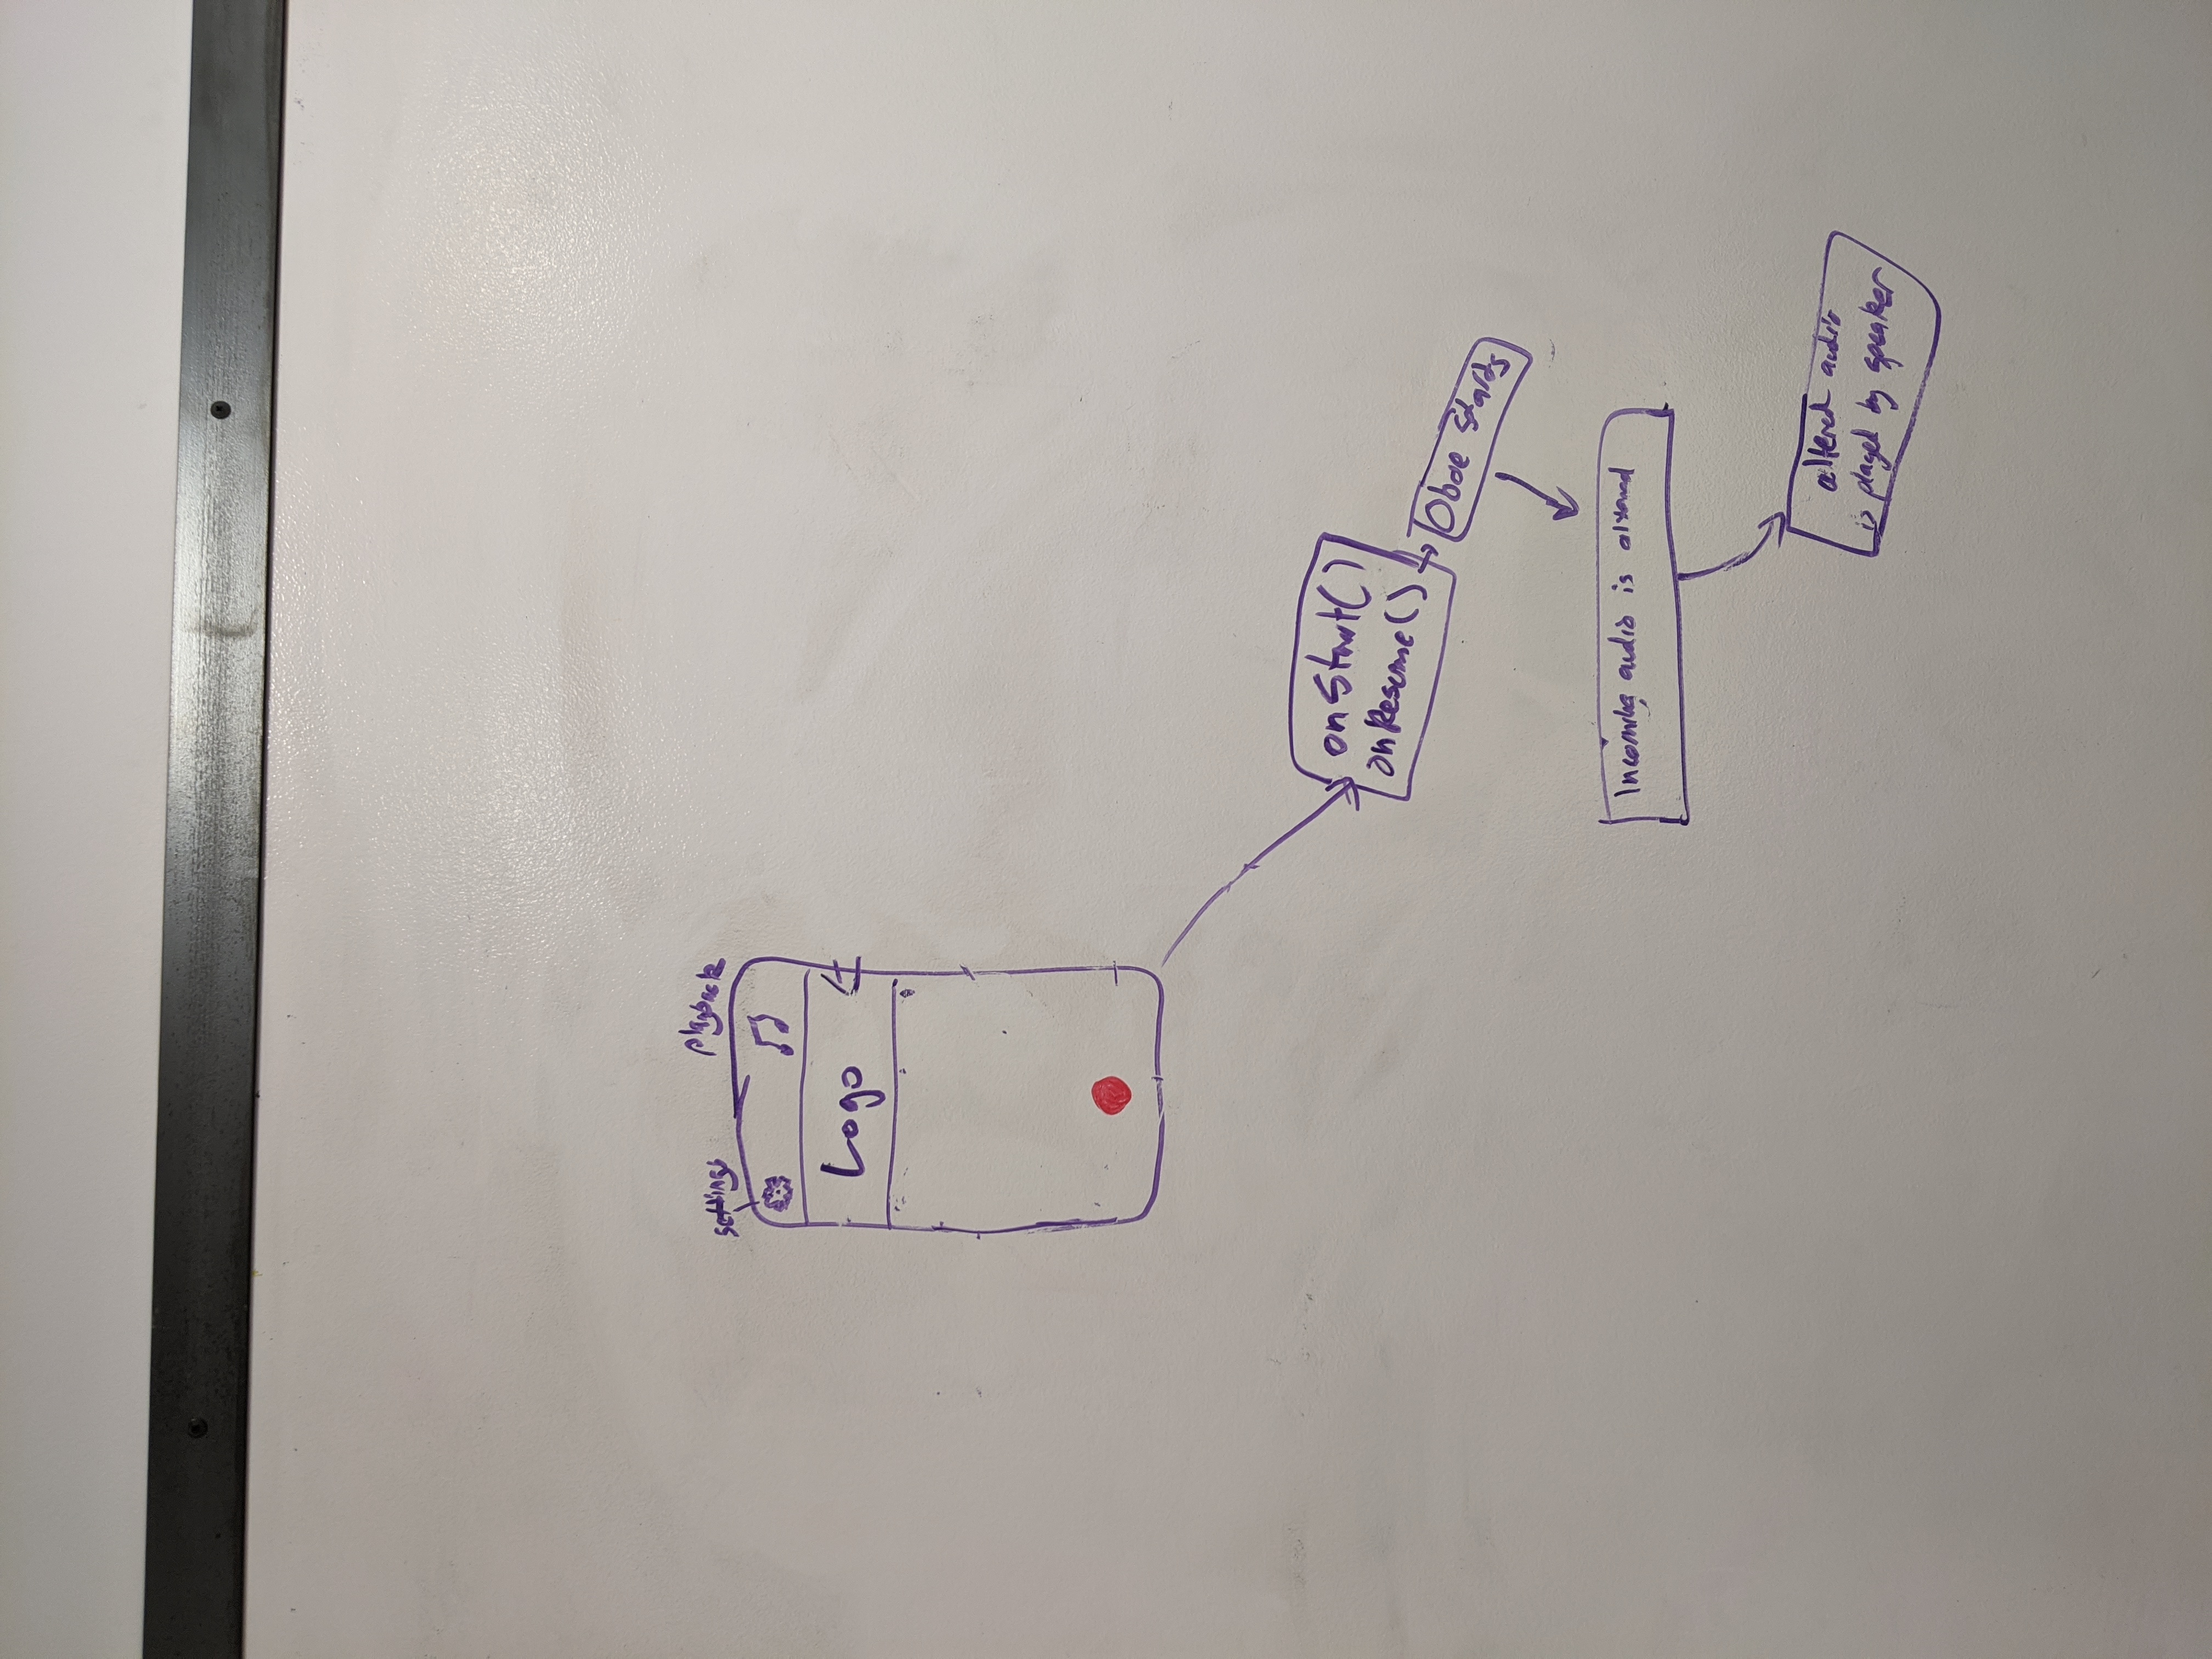 settings
playback
Logo
onStart()
onResume()
Oboe Starts
Incoming audio is altered
altered audio
is played by speaker